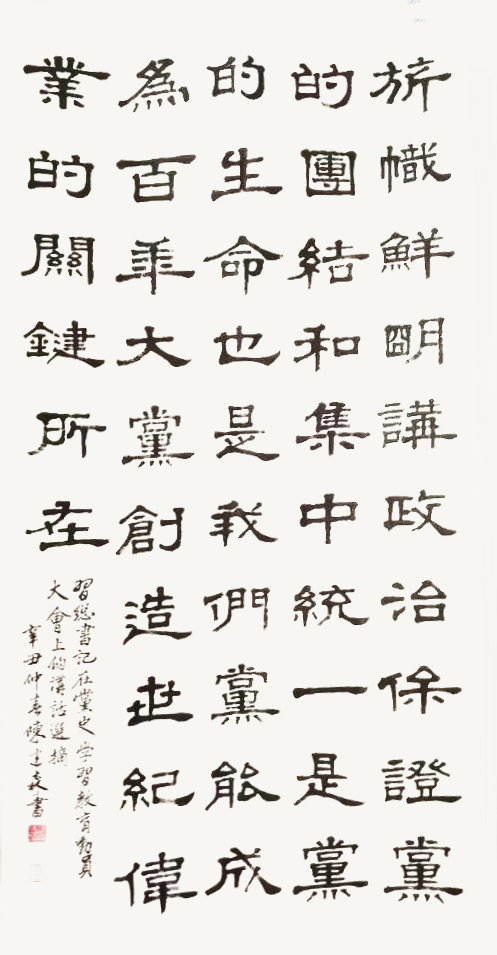 旂幟鮮明講政治保證黨
的團結和集中統一是黨
的生命也是我們黨能成
為百年大黨創造世紀偉
業的關鍵所在
習總書記在黨史学習教育動員
大會上的講話選摘
辛丑仲春陳建森書